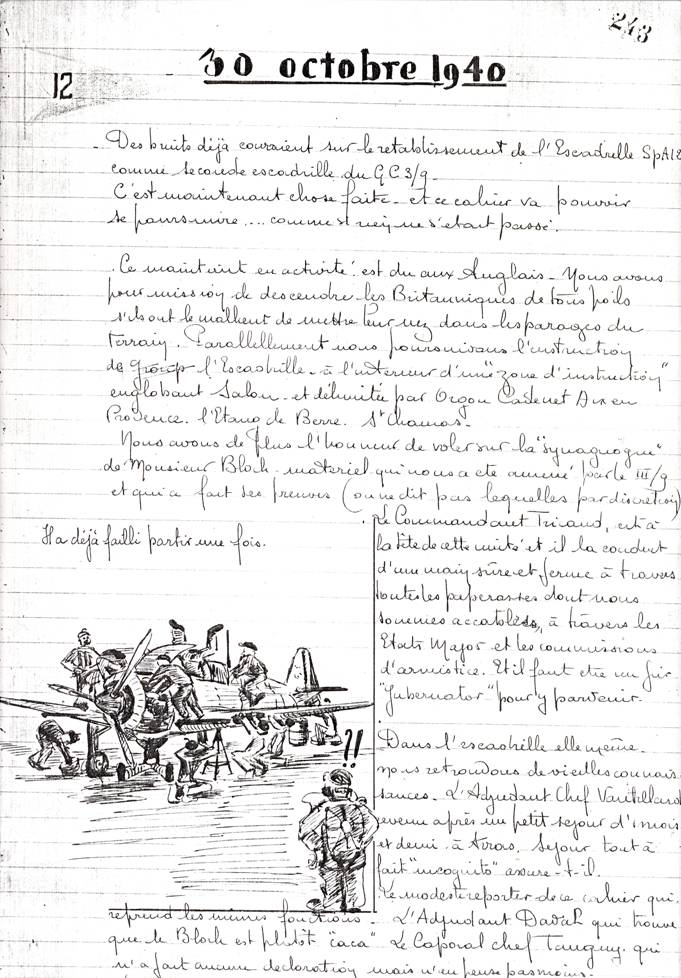 243
30 octobre 1940
12
Des bruits déjà couraient sur le retablissement de l'Escadrelle SpA12
comme seconde escadrille du GC 3/9.
C'est maintenant chose faite et ce cahier va pouvoir
se poursuivre .... comme si rien ne s'etait passé.
Ce maintient en activité est du aux Anglais. Nous avons
pour mission de descendre les Britanniques de tous poils
s'ils ont le malheur de mettre leur nez dans les parages du
terrain. Parallellement nous poursuivons l'instruction
de l'Escadrille à l'interieur d'une "zone d'instruction"
englobant Salon et délimitée par Orgon Cadenet Aix en
Provence. l'Etang de Berre. St Chamas.
Nous avons de plus l'honneur de voler sur la "synaguogue"
de Monsieur Bloch materiel qui nous a ete amené par le III/9
et qui a fait ses preuves (on ne dit pas lesquelles par discretion)
Il a déjà failli partir une fois.
Le Commandant Tricaud, est à
la tête de cette unité et il la conduit
d'une main sûre et ferme à travers
toutes les paperasses dont nous
sommes accablés, à travers les
Etats Major et les commissions
d'armistice. Et il faut etre un fier
"Gubernator" pour y parvenir.
!!
Dans l'escadrille elle même.
nous retrouvons de vieilles connais
sances. L'Adjudant Chef
revenu après un petit sejour d'1 mois
et demi à Sejour tout à
fait "incognito" assure-t-il.
Le modeste reporter de ce cahier qui
reprend les mêmes fonctions. L'Adjudant qui trouve
que le Bloch est plutôt "caca" Le Caporal chef Tanguy. qui
n'a fait aucune declaration mais n'en pense pas moins.